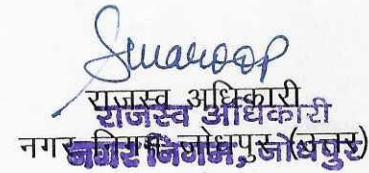 Swaroop
राजस्व अधिकारी
राजस्व अधिकारी
नगर निगम जोधपुर (उत्तर)
नगर निगम, जोधपुर